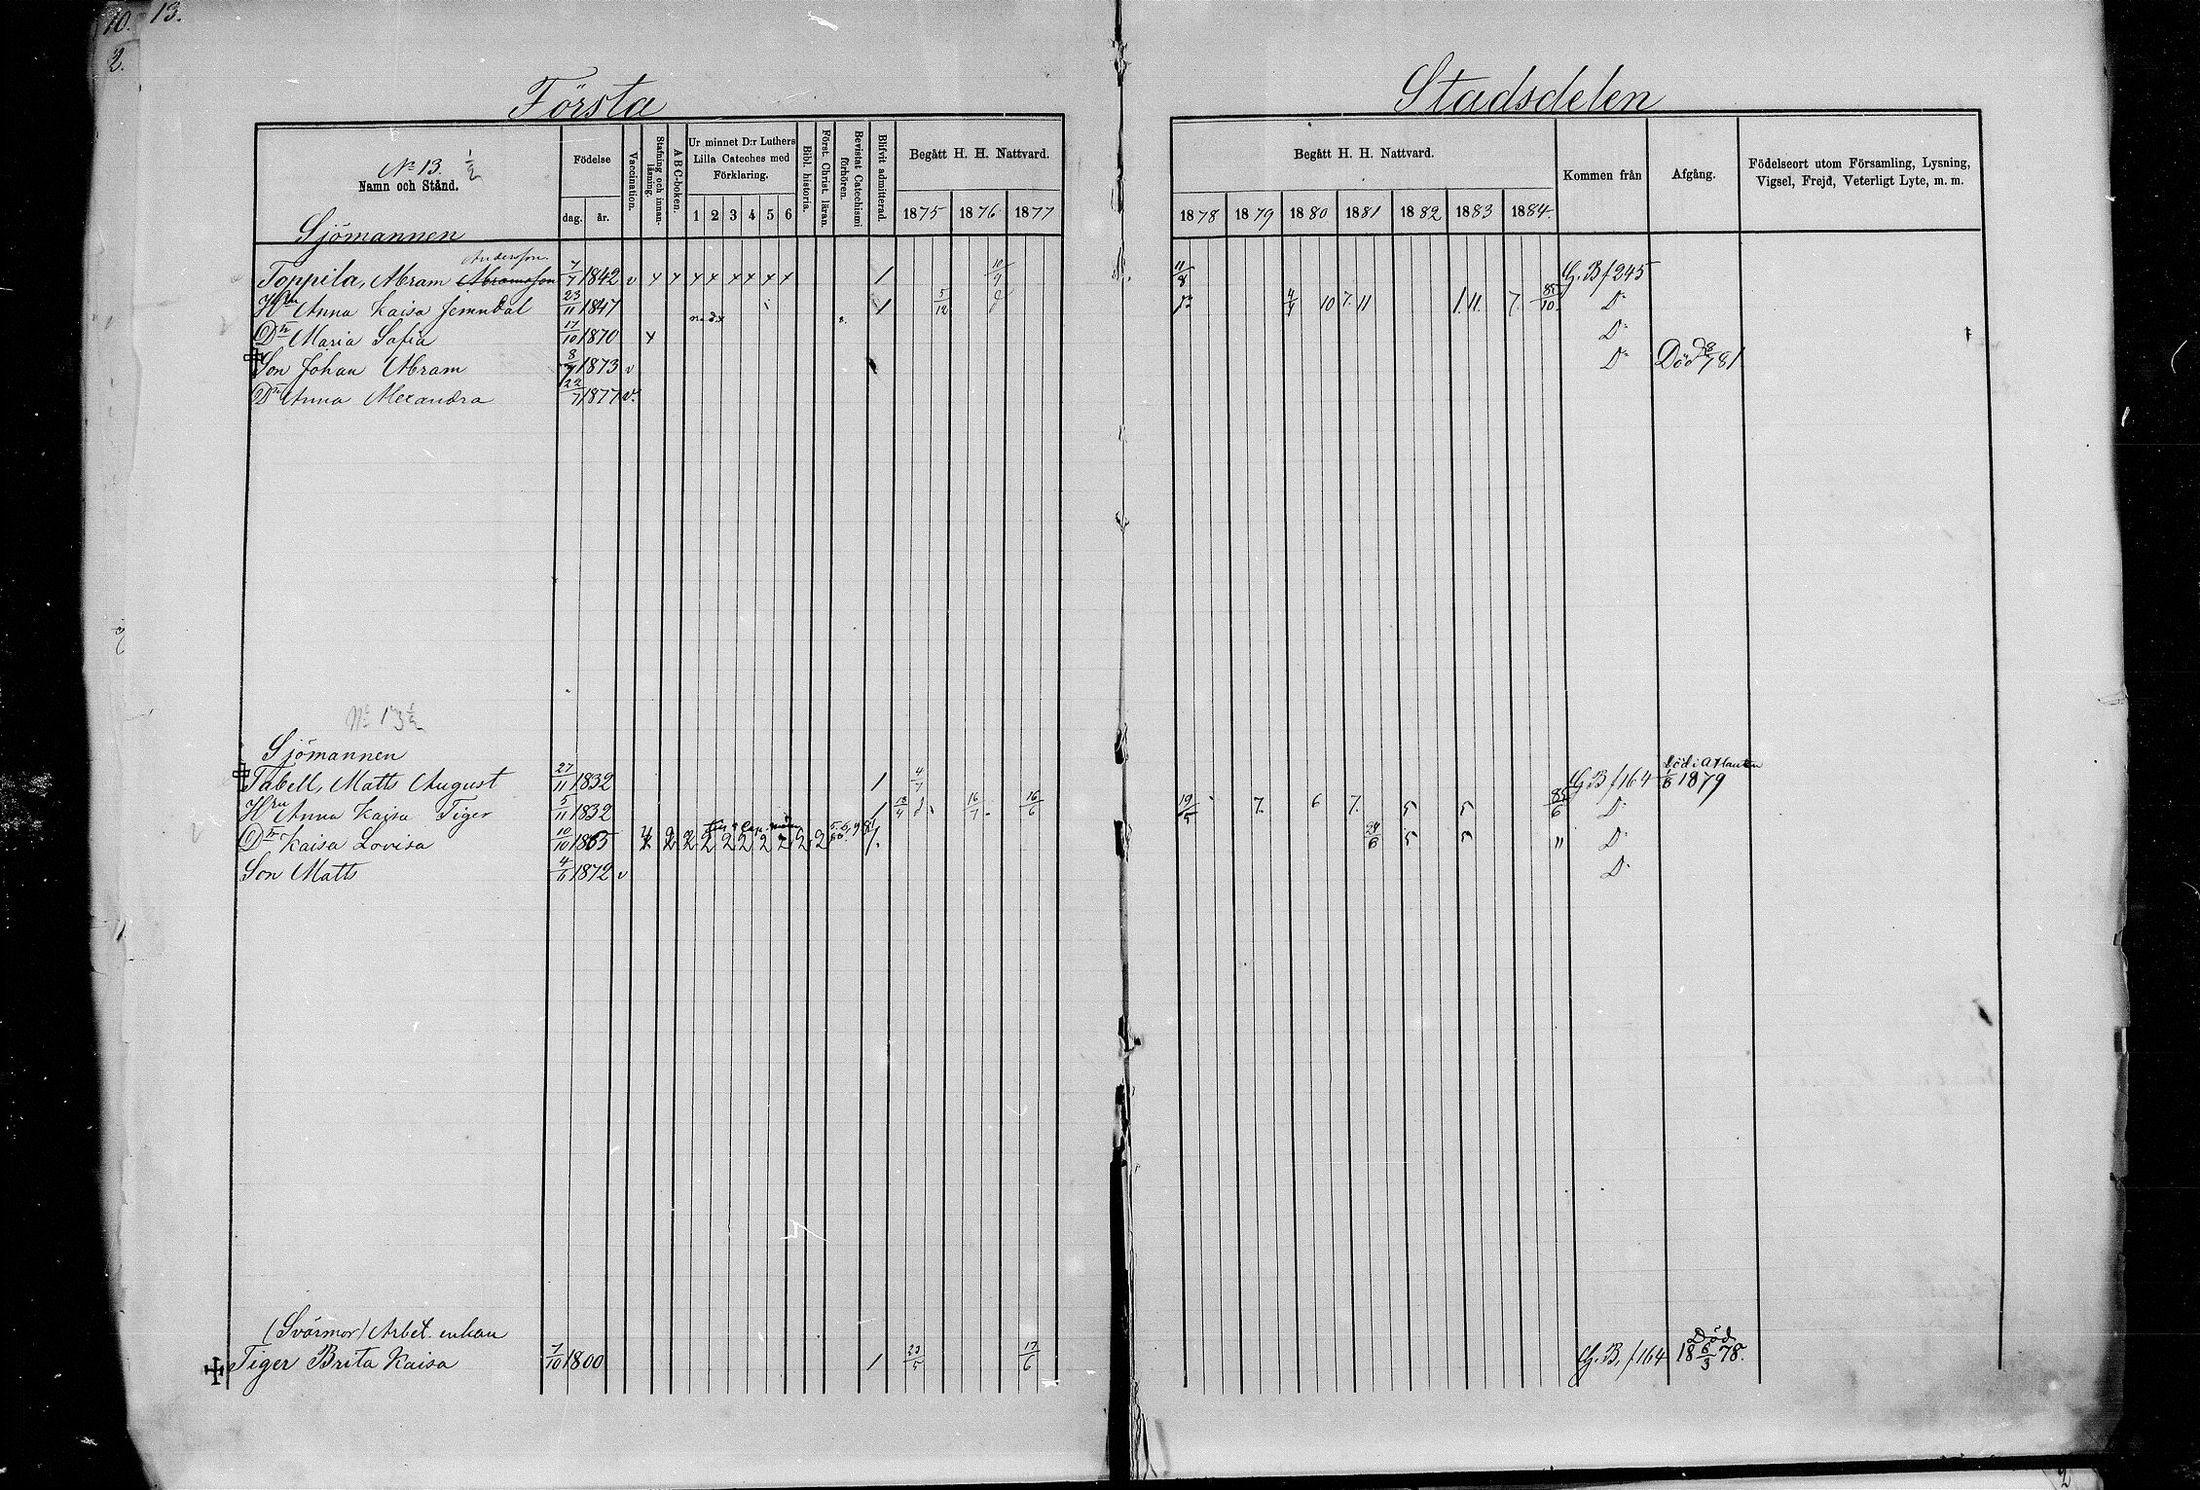 10. 13.
2.
Första Stadsdelen
No 13. 1/2
Namn och Stånd.
Födelse
dag. år.
Vaccination.
Stafning och innan-läsning.
A B C-boken.
Ur minnet D:r Luthers Lilla Cateches med Förklaring.
1 2 3 4 5 6
Bibl. historia.
Först. Christ. läran.
Bevistat Catechismi förhören.
Blifvit admitterad.
Begått H. H. Nattvard.
1875 1876 1877
Begått H. H. Nattvard.
1878 1879 1880 1881 1882 1883 1884
Kommen från
Afgång.
Födelseort utom Församling, Lysning, Vigsel, Frejd, Veterligt Lyte, m. m.
Sjömannen
Andersson
Toppila, Abram Abramsson 7/7 1842 v x x x x x x x x 1 10/9 11/8 G. B f 245
Hru Anna Kaisa Jemndal 23/11 1847 1 5/12 4/4 10 7. 11 1. 11. 7. 85/10. Do
Dtr Maria Sofia 17/10 1870 x Do
Son Johan Abram 8/7 1873 v Do Död 81
Dtr Anna Alexandra 22/7 1877 v.
No 13 1/2
Sjömannen
Tabell, Matts August 27/11 1832 1 4/7 G. B f 164 död i Atlanten 1/6 1879
Hru Anna Kaisa Tiger 5/11 1832 1 16/7. 16/6 19/5 7. 6 7. 5 5 85/6 Do
Dtr Kaisa Lovisa 10/10 1865 2 2 2 2 2 2 2 2 2 1. 24/6 5 5 " Do
Son Matts 4/6 1872 v Do
(Svärmor) Arbet. enkan
Tiger Brita Kaisa 7/10 1800 1 23/5 17/6 G. B. f 164 Död 18 6/3 78.